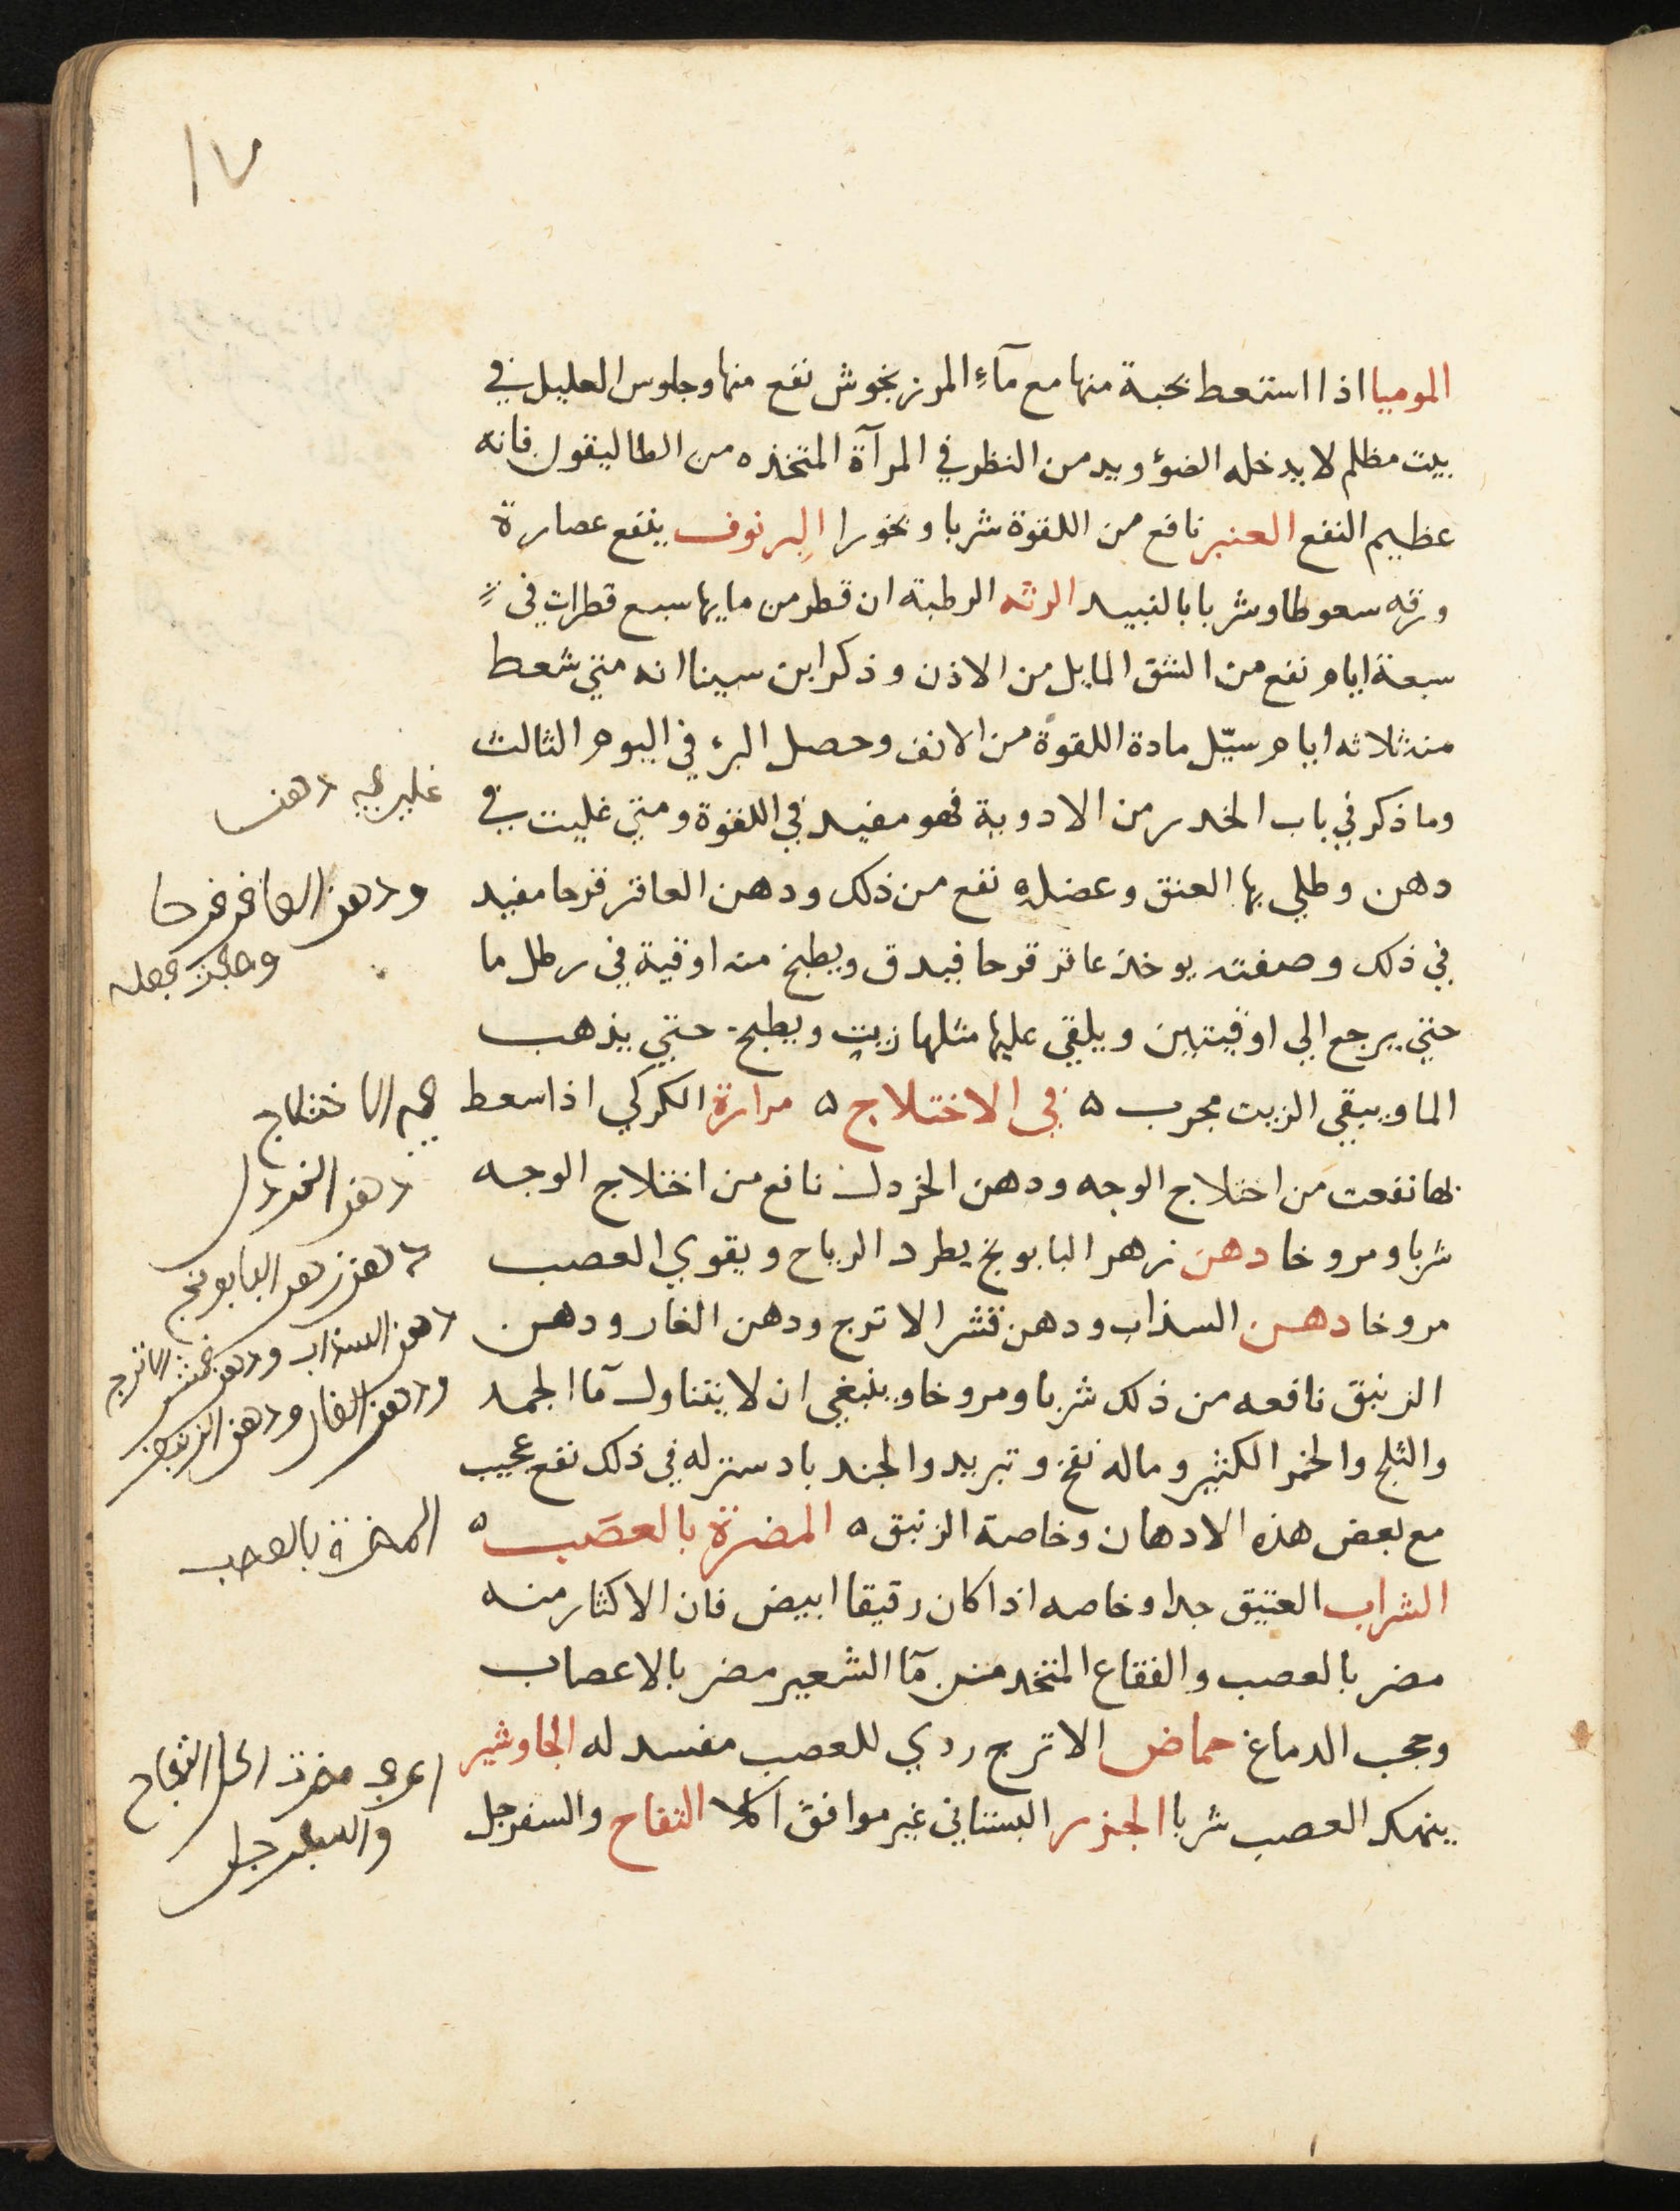 ١٧
الموميا اذا استعط بحبة منها مع مآء المرزنجوش نفع منها وجلوس العليل في
بيت مظلم لا يدخله الضوء ويدمن النظر في المرآة المتخذه من الطاليقون فانه
عظيم النفع العنبر نافع من اللقوة شربا وبخورا البرنوف ينفع عصارة
ورقه سعوطا وشربا بالنبيد الرته الرطبة ان قطر من مايها سبع قطرات في
سبعة ايام نفع من الشق المايل من الاذن وذكر ابن سينا انه متي سُعط
منه ثلاثه ايام سيّل مادة اللقوة من الانف وحصل البرء في اليوم الثالث
وما ذكر في باب الخدر من الادوية فهو مفيد في اللقوة ومتي غليت في
دهن وطلي بها العنق وعضله نفع من ذلك ودهن العاقرقرحا مفيد
في ذلك وصفته يوخذ عاقرقرحا فيدق ويطبخ منه اوقية في رطل ما
حتي يرجع الي اوقيتين ويلقي عليها مثلها زيت ويطبخ حتي يذهب
الما ويبقي الزيت مجرب ه في الاختلاج ه مرارة الكركي اذا سعط
بها نفعت من اختلاج الوجه ودهن الخردل نافع من اختلاج الوجه
شربا ومروخا دهن زهر البابونج يطرد الرياح ويقوي العصب
مروخا دهن السذاب ودهن قشر الاترج ودهن الغار ودهن
الزنبق نافعه من ذلك شربا ومروخا وينبغي ان لا يتناول مآ الجمد
والثلج والخمر الكثير وماله نفخ وتبريد والجندبادستر له في ذلك نفع عجيب
مع بعض هذه الادهان وخاصة الزنبق ه المضرة بالعصَب ه
الشراب العتيق جدا وخاصه اذا كان رقيقا ابيض فان الاكثار منه
مضر بالعصب والفقاع المتخد من مآ الشعير مضر بالاعصاب
وحجب الدماغ حماض الاترج ردي للعصب مفسد له الجاوشير
ينهك العصب شربا الجزر البستاني غير موافق اكلا التفاح والسفرجل
دهن
ودهن العاقرقرحا
الاختلاج
دهن الخردل
دهن زهر البابونج
دهن السذاب ودهن قشر الاترج
ودهن الغار ودهن الزنبق
المضرة بالعصب
مضرت اكل التفاح
والسفرجل